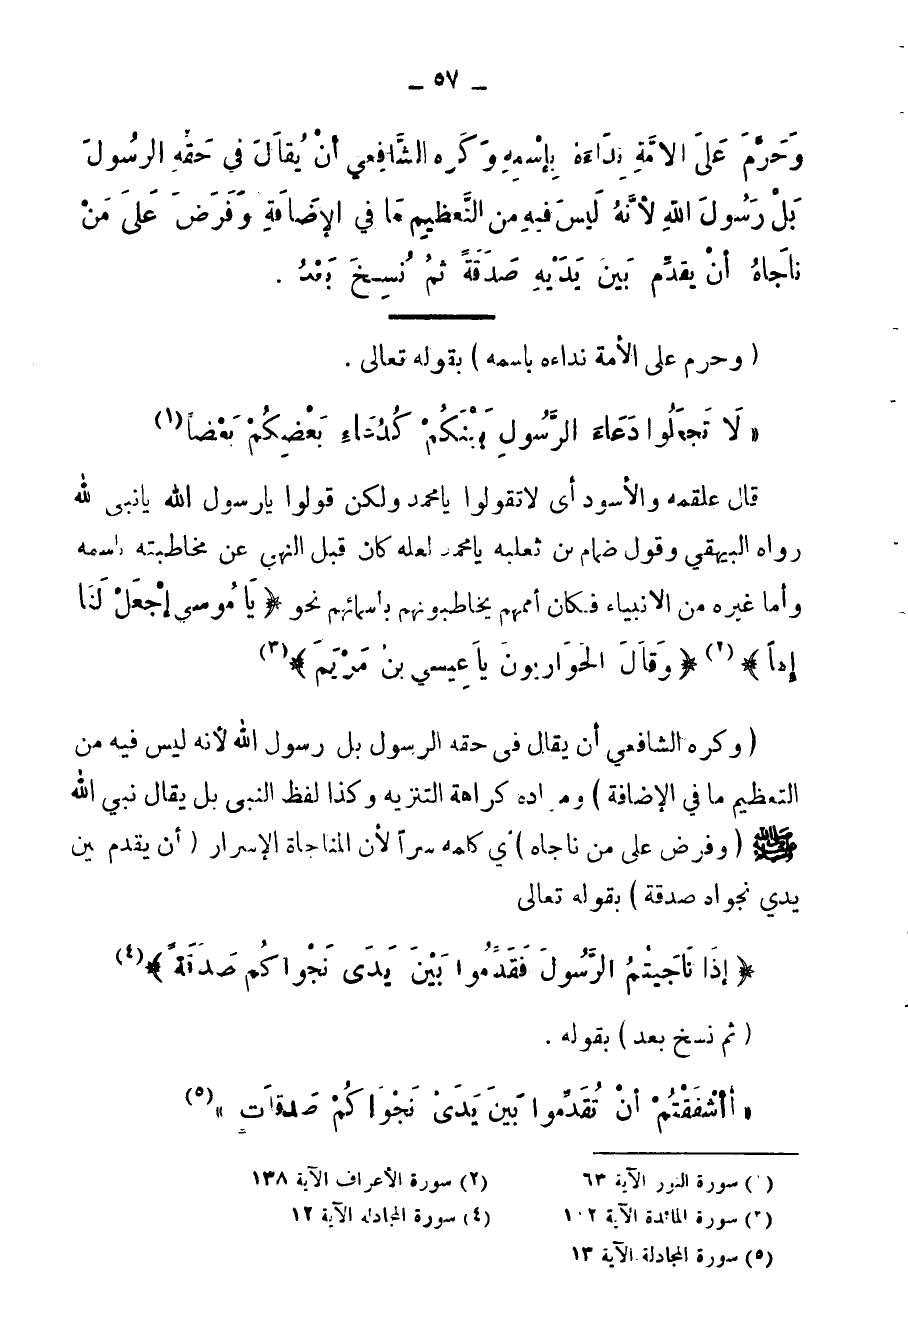 ـ ٥٧ ـ
وَحَرَّمَ عَلَى الامَّةِ نِدَاءَهُ بِإسْمِهِ وَكَرِه الشَّافِعي أنْ يُقَالَ في حَقِّهِ الرسُولَ
بَلْ رَسُولَ اللهِ لأنَّهُ لَيسَ فيهِ من التَّعظِيمِ مَا في الإضَافَةِ وَفَرَضَ عَلَى مَنْ
ناجَاهُ أنْ يقدِّم بَينَ يَدَيْهِ صَدَقَةً ثمَّ نُسِخَ بَعْدُ .
( وحرم على الأمة نداءه باسمه ) بقوله تعالى .
« لَا تَجعَلُوا دَعَاءَ الرَّسُولِ بَيْنَكُمْ كَدُعَاءِ بَعْضِكُمْ بَعْضاً (١)
قال علقمه والأسود أى لاتقولوا يامحمد ولكن قولوا يارسول الله يانبى لله
رواه البيهقي وقول ضمام بن ثعلبه يامحمد لعله كان قبل النهي عن مخاطبته باسمه
وأما غيره من الانبياء فكان أممهم يخاطبونهم بأسمائهم نحو ﴿ يَا مُوسي إجْعَلْ لَنَا
إلهاً ﴾ (٢) ﴿ وَقَالَ الحَوَاريونَ يا عِيسي بنُ مَرْيَمَ ﴾(٣)
( وكره الشافعي أن يقال فى حقه الرسول بل رسول الله لأنه ليس فيه من
التعظيم ما في الإضافة ) ومراده كراهة التنزيه وكذا لفظ النبى بل يقال نبي الله
ﷺ ( وفرض على من ناجاه ) أي كلمه سراً لأن المناجاة الإسرار ( أن يقدم بين
يدي نجواه صدقة ) بقوله تعالى
﴿ إذَا نَاجَيتُمُ الرَّسُولَ فَقَدَّمُوا بَيْنَ يَدَى نَجْواكم صَدَقَةً ﴾(٤)
( ثم نسخ بعد ) بقوله .
« أأشْفَقْتُمْ أنْ تُقَدِّموا بَينَ يَدَىْ نَجْوَاكُمْ صَدقَات » (٥)
(١) سورة النور الآية ٦٣
(٢) سورة الأعراف الآية ١٣٨
(٣) سورة المائدة الآية ١٠٢
(٤) سورة المجادله الآية ١٢
(٥) سورة المجادلة الآية ١٣